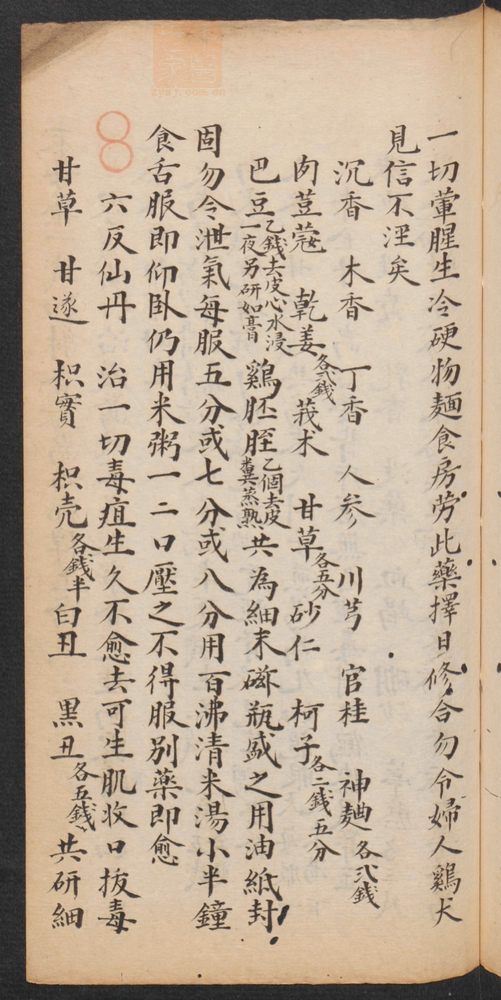 一切葷腥生冷硬物麵食房劳此藥擇日修合勿令婦人鷄犬
見信不浧矣
沉香 木香 丁香 人参 川芎 官桂 神麯各弍錢
肉荳蔻 乾姜各弍錢 莪术 甘草各五分 砂仁 柯子各二錢五分
巴豆乙錢去皮心水浸一夜另研如膏 鷄胵胵乙個去皮糞蒸熟 共為細末磁瓶盛之用油紙封
固勿令泄氣每服五分或七分或八分用百沸清米湯小半鐘
食舌服即仰卧仍用米粥一二口壓之不得服别藥即愈
六反仙丹 治一切毒疽生久不愈去可生肌收口拔毒
甘草 甘遂 枳實 枳壳各錢半 白丑 黑丑各五錢 共研細